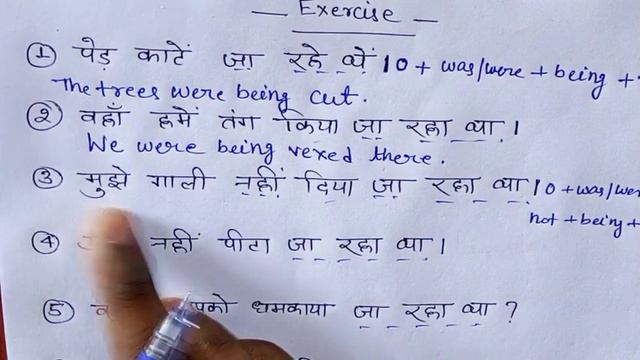 — Exercise —
① पेड़ काटें जा रहे थें। O + was/were + being +
The trees were being cut.
② वहाँ हमें तंग किया जा रहा था।
We were being vexed there.
③ मुझे गाली नहीं दिया जा रहा था। O + was/wer
not + being +
④ नहीं पीटा जा रहा था।
⑤ धमकाया जा रहा था?